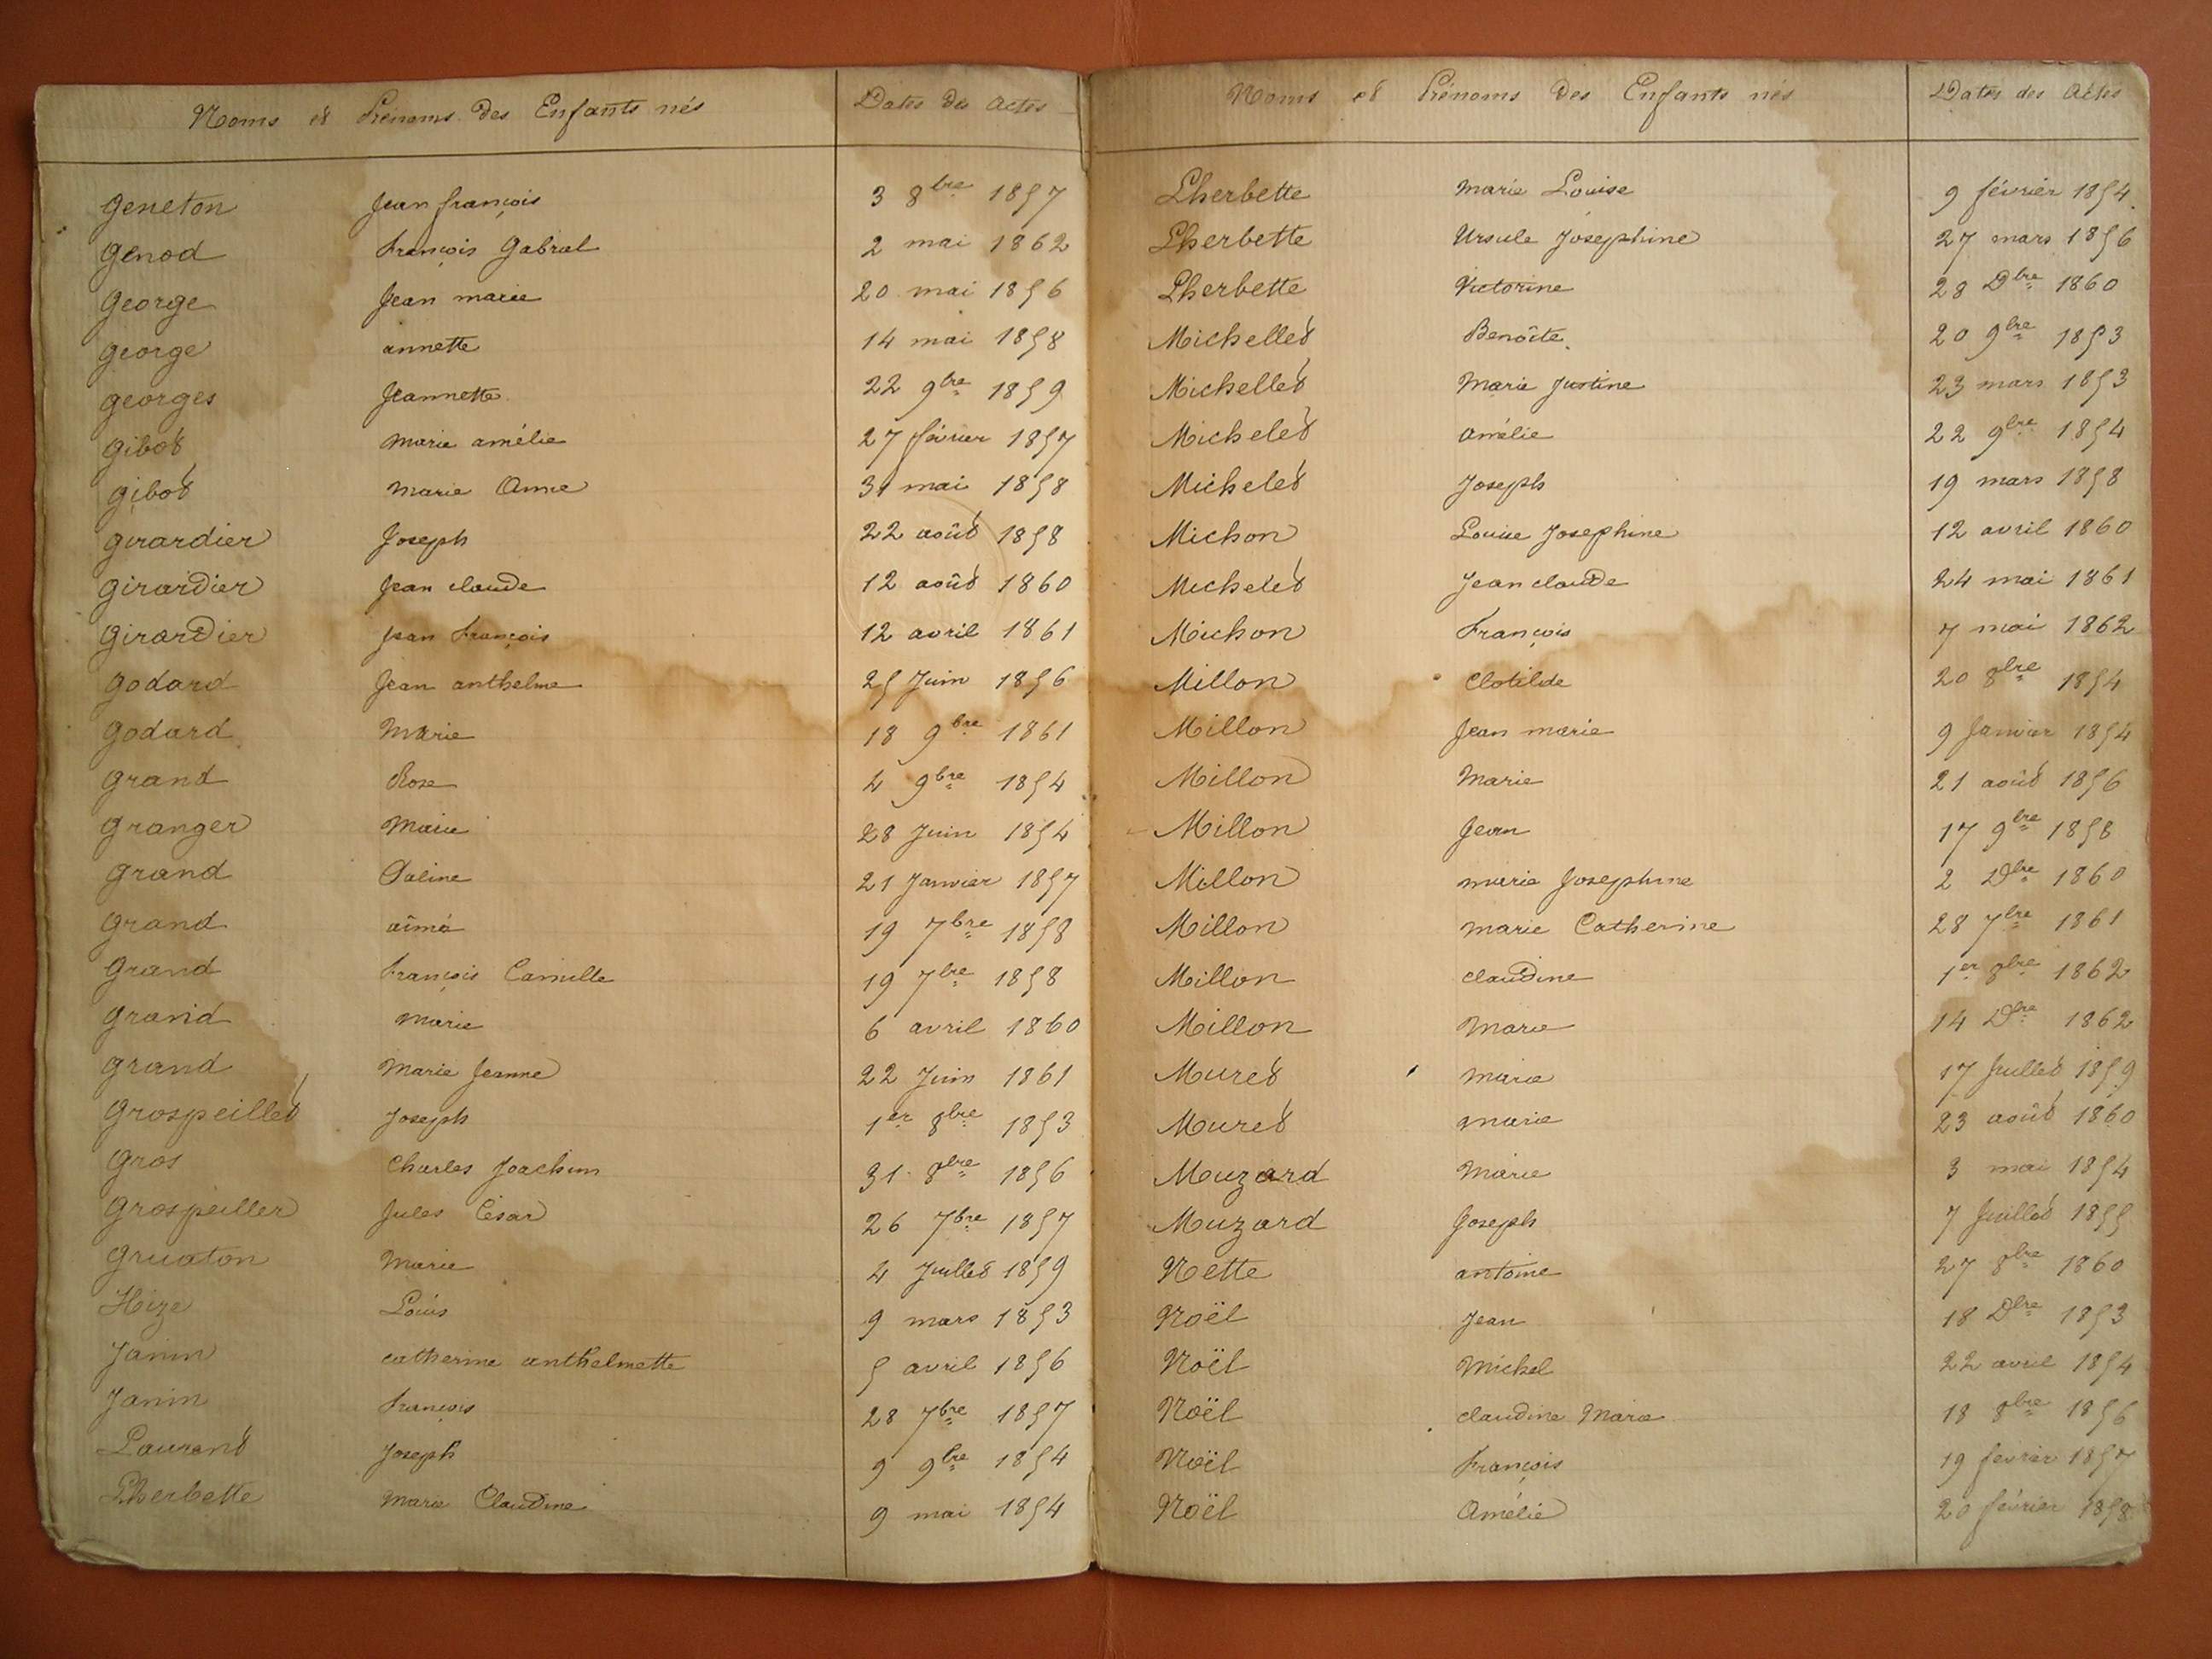 Noms et Prénoms des Enfants nés Dates des Actes
Geneton Jean françois 3 8bre 1857
Genod François Gabriel 2 mai 1862
George Jean marie 20 mai 1856
George annette 14 mai 1858
Georges Jeannette 22 9bre 1859
Gibot Marie amélie 27 février 1857
Gibot Marie Anne 31 mai 1858
Girardier Joseph 22 août 1858
Girardier Jean claude 12 août 1860
Girardier Jean François 12 avril 1861
Godard Jean anthelme 25 Juin 1856
Godard Marie 18 9bre 1861
Grand Rose 4 9bre 1854
Granger Marie 28 Juin 1854
Grand 21 Janvier 1857
Grand aîmé 19 7bre 1858
Grand François Camille 19 7bre 1858
Grand Marie 6 avril 1860
Grand Marie Jeanne 22 Juin 1861
Grospeillet Joseph 1er 8bre 1853
Gros Charles Joachim 31 8bre 1856
Grospeiller Jules César 26 7bre 1857
Gruaton Marie 4 Juillet 1859
Hize Louis 9 mars 1853
Janin catherine anthelmette 5 avril 1856
Janin François 28 7bre 1857
Laurent Joseph 9 9bre 1854
Lherbette Marie Claudine 9 mai 1854
Noms et Prénoms des Enfants nés Dates des Actes
Lherbette Marie Louise 9 février 1854
Lherbette Ursule Josephine 27 mars 1856
Lherbette Victorine 28 Dbre 1860
Michellet Benoîte 20 9bre 1853
Michellet Marie Justine 23 mars 1853
Michelet amélie 22 9bre 1854
Michelet Joseph 19 mars 1858
Michon Louise Josephine 12 avril 1860
Michelet Jean claude 24 mai 1861
Michon François 7 mai 1862
Millon Clotilde 20 8bre 1854
Millon Jean marie 9 Janvier 1854
Millon Marie 21 août 1856
Millon Jean 17 9bre 1858
Millon marie Josephine 2 Dbre 1860
Millon Marie Catherine 28 7bre 1861
Millon claudine 1er 8bre 1862
Millon Marie 14 Dbre 1862
Muret Marie 17 Juillet 1859
Muret Marie 23 août 1860
Muzard Marie 3 mai 1854
Muzard Joseph 7 Juillet 1855
Nette antoine 27 8bre 1860
Noël Jean 18 Dbre 1853
Noël Michel 22 avril 1854
Noël claudine Marie 18 8bre 1856
Noël François 19 fevrier 1857
Noël Amélie 20 février 1858